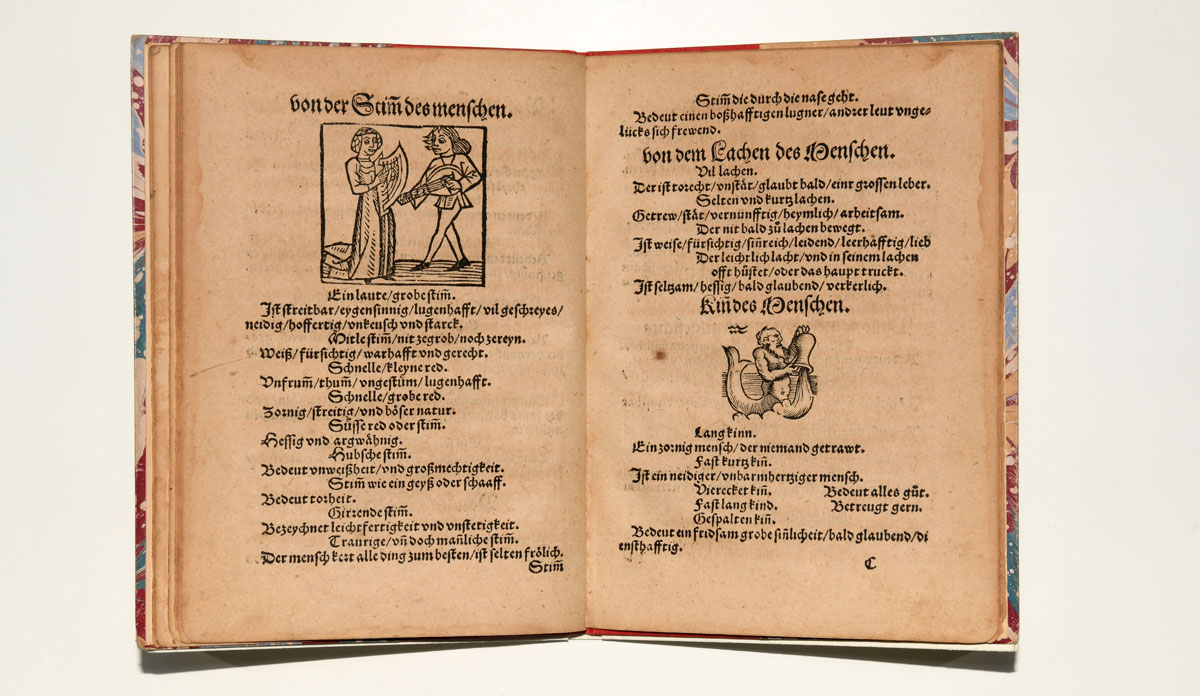 von der Stim̃ des menschen.
Ein laute/grobe stim̃.
Ist streitbar/eygensinnig/lugenhafft/vil geschreyes/
neidig/hoffertig/vnkeusch vnd starck.
Mitle stim̃/nit zegrob/noch zereyn.
Weiß/fürsichtig/warhafft vnd gerecht.
Schnelle/kleyne red.
Vnfrum̃/thum̃/vngestüm/lugenhafft.
Schnelle/grobe red.
Zornig/streitig/vnd böser natur.
Süsse red oder stim̃.
Hessig vnd argwähnig.
Hubsche stim̃.
Bedeut vnweißheit/vnd großmechtigkeit.
Stim̃ wie ein geyß oder schaaff.
Bedeut torheit.
Girrende stim̃.
Bezeychnet leichtfertigkeit vnd vnstetigkeit.
Traurige/vn̄ doch man̄liche stim̃.
Der mensch kert alle ding zum besten/ist selten frölich.
Stim̃
Stim̃ die durch die nase geht.
Bedeut einen boßhafftigen lugner/andrer leut vnge-
lücks sich frewend.
von dem Lachen des Menschen.
Vil lachen.
Der ist torecht/vnstät/glaubt bald/einr grossen leber.
Selten vnd kurtz lachen.
Getrew/stät/vernunfftig/heymlich/arbeitsam.
Der nit bald zů lachen bewegt.
Ist weise/fürsichtig/sin̄reich/leidend/leerhäfftig/lieb
Der leichtlich lacht/vnd in seinem lachen
offt hüstet/oder das haupt truckt.
Ist seltzam/hessig/bald glaubend/verkerlich.
Kin̄ des Menschen.
Lang kinn.
Ein zornig mensch/der niemand getrawt.
Fast kurtz kin̄.
Ist ein neidiger/vnbarmhertziger mensch.
Vierecket kin̄. Bedeut alles gůt.
Fast lang kind. Betreugt gern.
Gespalten kin̄.
Bedeut ein fridsam grobe sin̄licheit/bald glaubend/di
ensthafftig.
C